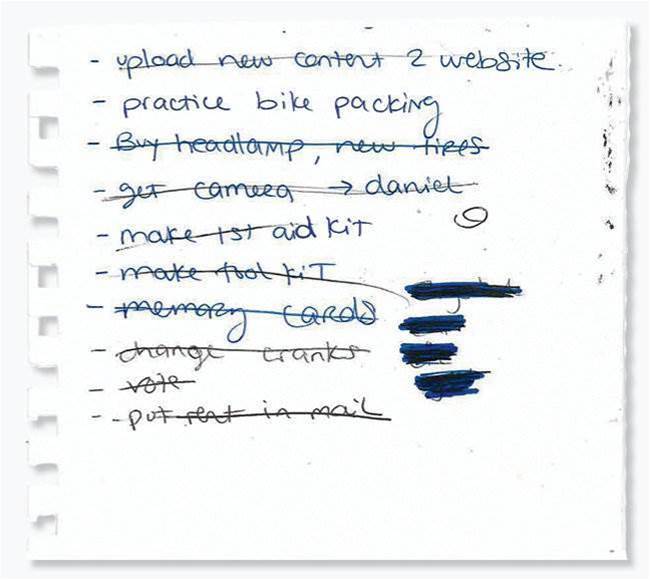 - upload new content 2 website.
- practice bike packing
- Buy headlamp, new tires
- get camera → daniel
- make 1st aid kit
- make tool kit
- memory cards
- change cranks
- vote
- - put rent in mail